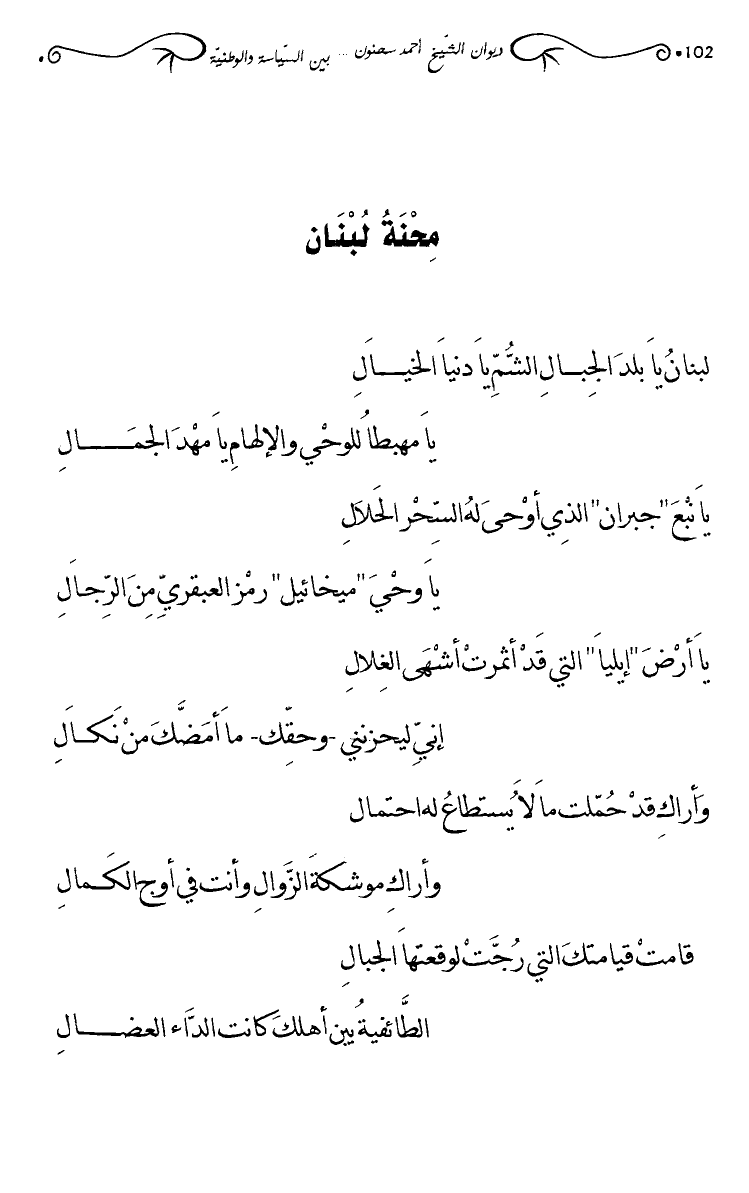 102• ديوان الشّيخ أحمد سحنون ... بين السّياسة والوطنيّة
مِحْنَةُ لُبْنَان
لبنانُ ياَ بلدَ الجِبالِ الشُّمِّ ياَ دنياَ الخيالِ
ياَ مهبطاً للوحْي والإلهامِ ياَ مهْدَ الجمَالِ
ياَ نبْعَ "جبران" الذِي أوْحى لهُ السِّحْر الحَلاَلِ
ياَ وحْيَ "ميخائيل" رمْز العبقريِّ مِنَ الرِّجالِ
ياَ أرْضَ "إيلياَ" التي قَدْ أثمرتْ أشْهَى الغِلالِ
إنيِّ ليحزنني -وحقِّك- ماَ أمَضَّكَ منْ نَكالِ
وَأراكِ قدْ حُمّلت ماَ لاَ يُستطاعُ له احتمال
وأراكِ موشكةَ الزَّوالِ وأنت في أوج الكَمالِ
قامتْ قيامتكَ التي رُجَّتْ لوقعتهاَ الجبالِ
الطَّائفيةُ بين أهلكَ كانت الدَّاء العضالِ